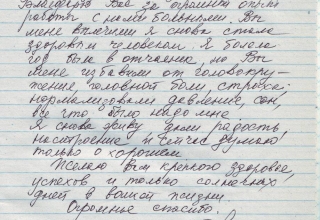 Благодарю Вас за огромный опыт
работы с нами больными. Вы
меня вылечили я снова стала
здоровым человеком. Я болела
год была в отчаении, но Вы
меня избавили от головокру-
жения, головной боли, страха,
нормализовали давление, сон,
все что было надо мне.
Я снова живу дали радость
настроение и сейчас думаю
только о хорошем.
Желаю Вам крепкого здоровья,
успехов и только солнечных
дней в вашей жизни.
Огромное спасибо.